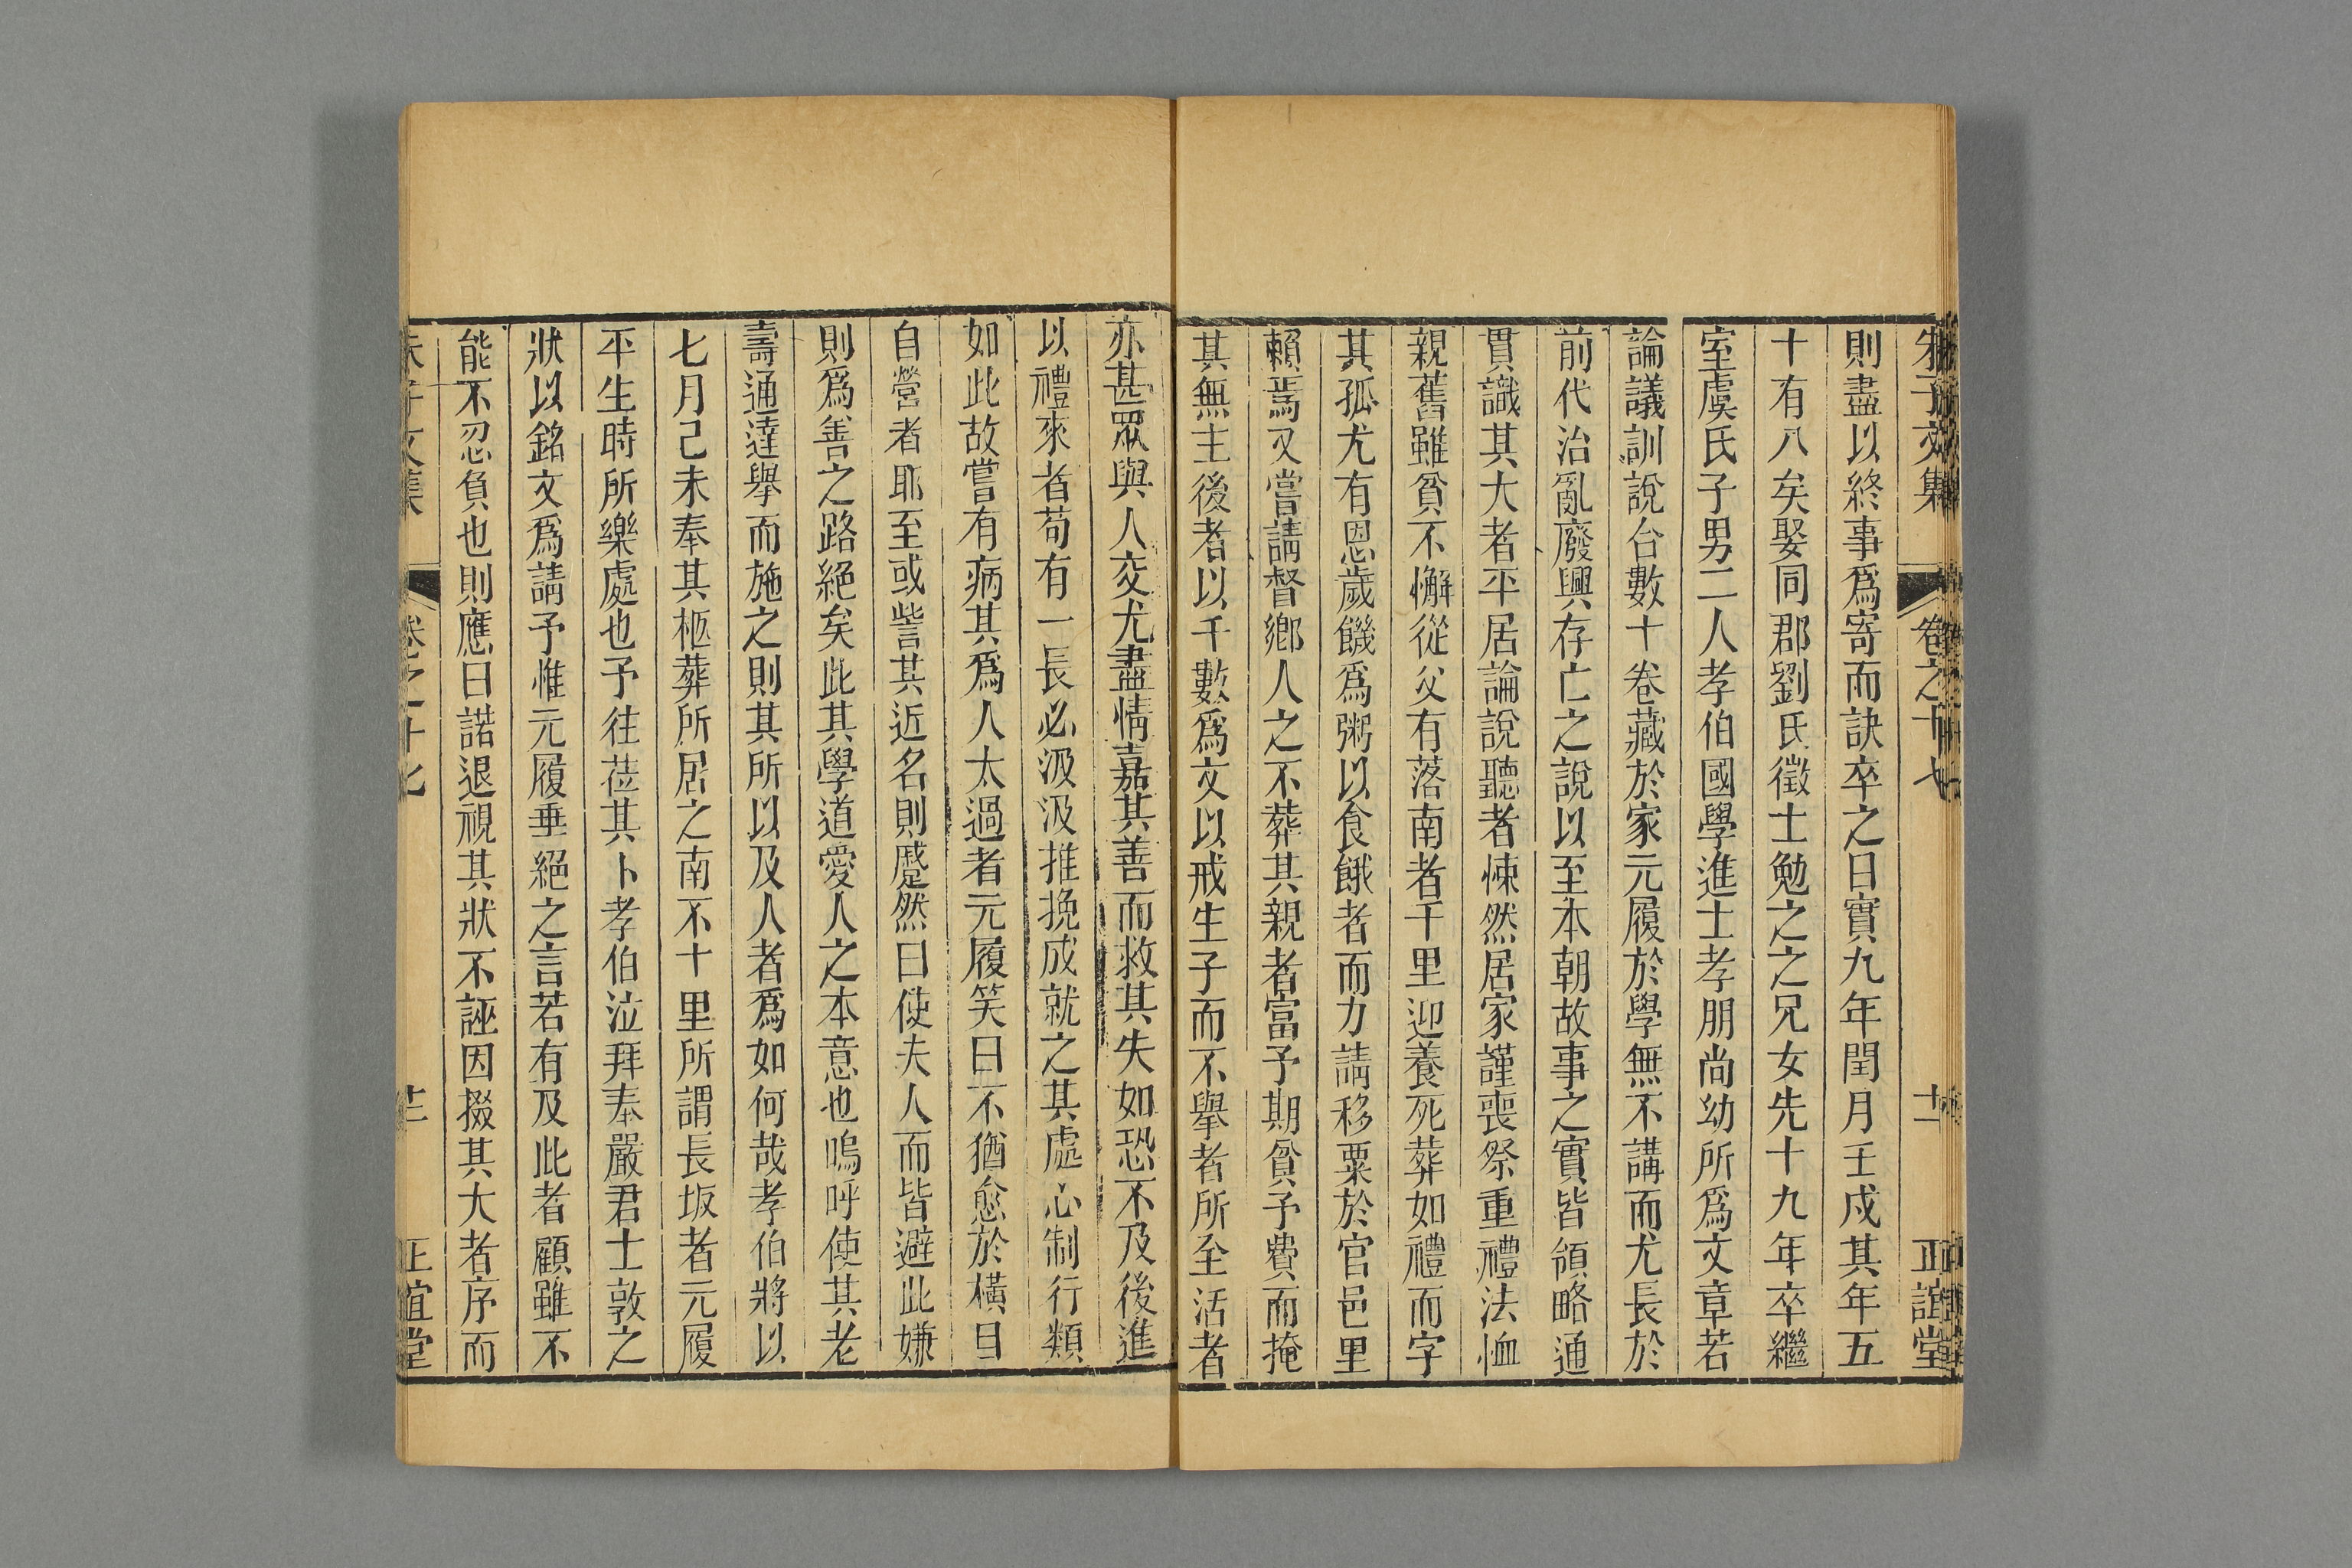 朱子文集 卷之十七 十二 正誼堂
則盡以終事爲寄而訣卒之日實九年閏月壬戌其年五
十有八矣娶同郡劉氏徵士勉之之兄女先十九年卒繼
室虞氏子男二人孝伯國學進士孝朋尚幼所爲文章若
論議訓說台數十卷藏於家元履於學無不講而尤長於
前代治亂廢興存亡之說以至本朝故事之實皆領略通
貫識其大者平居論說聽者悚然居家謹喪祭重禮法恤
親舊雖貧不懈從父有落南者千里迎養死葬如禮而字
其孤尤有恩歲饑爲粥以食餓者而力請移粟於官邑里
賴焉又嘗請督鄉人之不葬其親者富予期貧予費而掩
其無主後者以千數爲文以戒生子而不舉者所至活者
亦甚眾與人交尤盡情嘉其善而救其失如恐不及後進
以禮來者苟有一長必汲汲推挽成就之其處心制行類
如此故嘗有病其爲人太過者元履笑曰不猶愈於橫目
自營者耶至或訾其近名則蹙然曰使夫人而皆避此嫌
則爲善之路絕矣此其學道愛人之本意也嗚呼使其老
壽通達舉而施之則其所以及人者爲如何哉孝伯將以
七月己未奉其柩葬所居之南不十里所謂長坂者元履
平生時所樂處也予往莅其卜孝伯泣拜奉嚴君士敦之
狀以銘文爲請予惟元履垂絕之言若有及此者顧雖不
能不忍負也則應曰諾退視其狀不誣因掇其大者序而
朱子文集 卷之十七 正誼堂